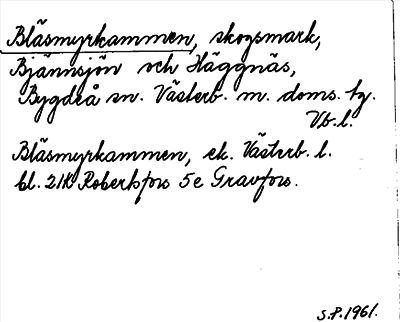 Blåsmyrkammen, skogsmark,
Bjännsjön och Häggnäs,
Bygdeå sn. Västerb. m. doms. tg.
Vb. l.
Blåsmyrkammen, ek. Västerb. l.
bl. 21K Robertsfors 5e Gravfors.
S.P. 1961.